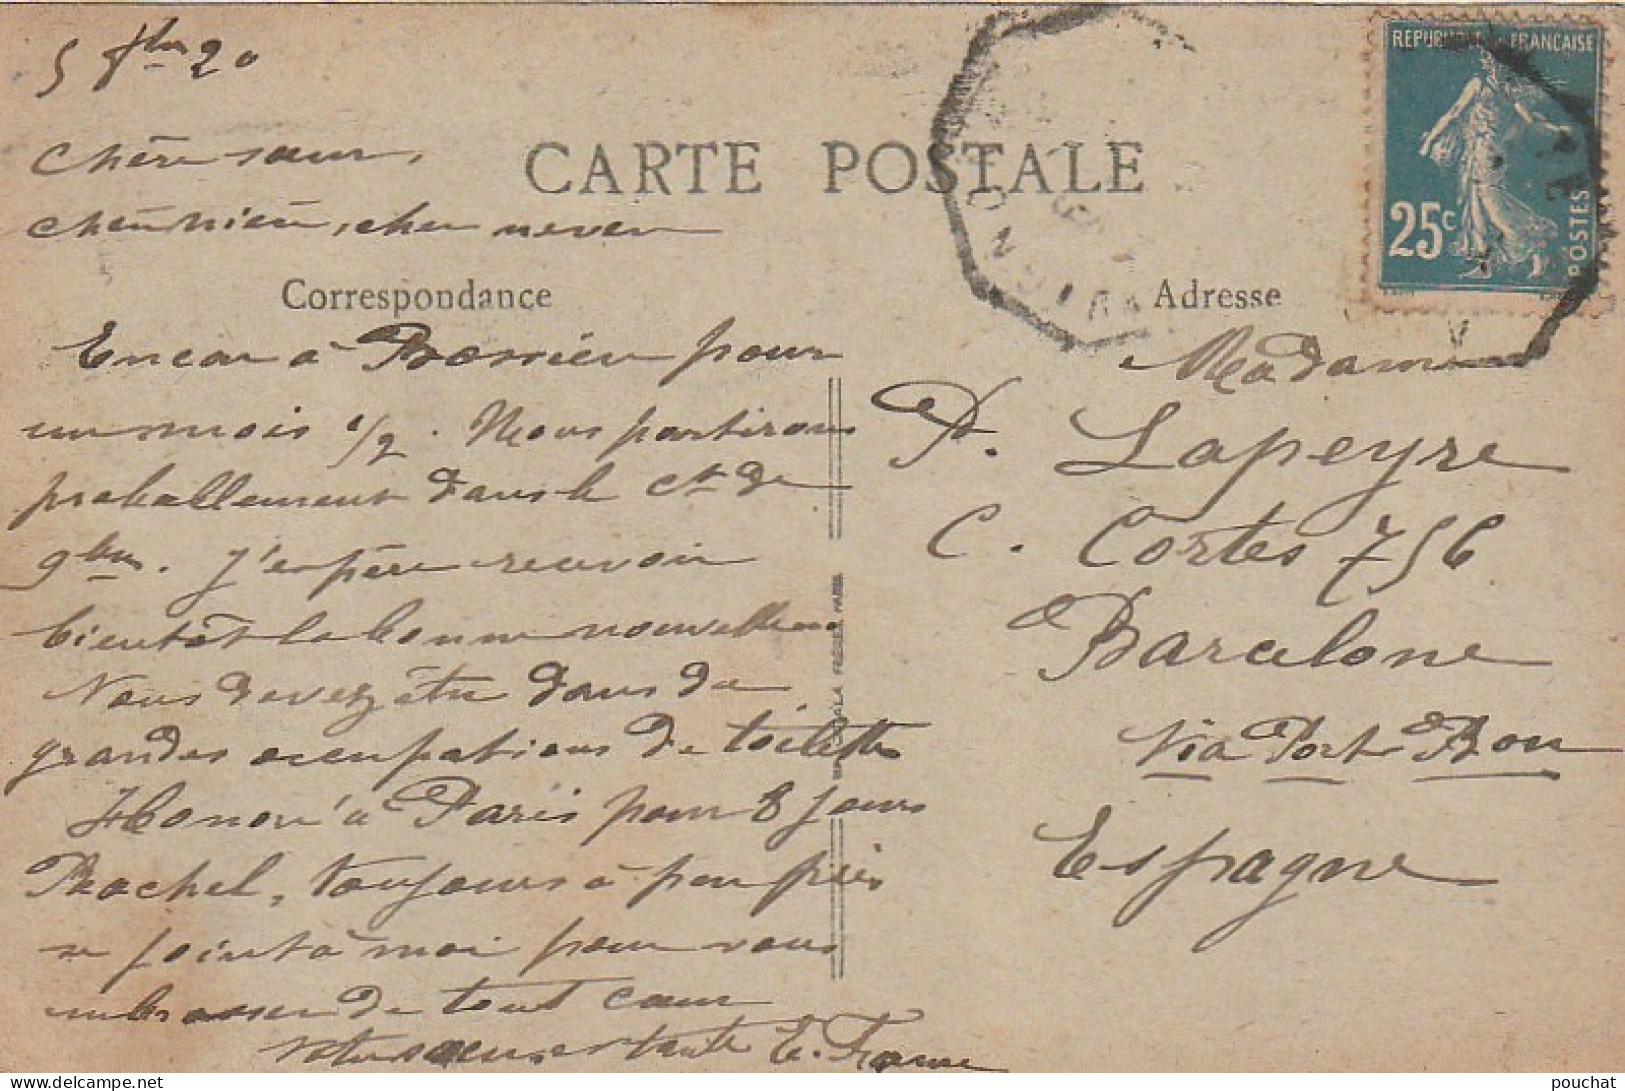 5 7bre 20
CARTE POSTALE
REPUBLIQUE FRANCAISE
25c
POSTES
Chère sœur,
chère nièce, cher neveu
Correspondance
Adresse
Encor à Bossieu pour
un mois 1/2. Nous partirons
proballement dans le ct de
9bre. J'espère recevoir
bientôt la bonne nouvelle
Vous devez être dans de
grandes occupations de toilette
Honoré à Paris pour 8 jours
Rachel, toujours à peu près
se joint à moi pour vous
embrasser de tout cœur
votre sœur et tante E.
Madame
P. Lapeyre
C. Cortes 756
Barcelone
via Port Bou
Espagne
AVIGNON
pouchat